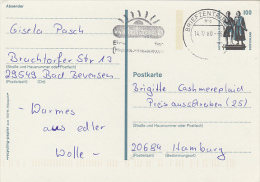 Absender
Gisela Pasch
Bruchtorfer Str 17
(Straße und Hausnummer oder Postfach)
29549 Bad Bevensen
(Postleitzahl) (Ort)
- Warmes
aus edler
Wolle -
BRIEFZENTR
100
Postkarte
Brigitte Cashmereplaid
Preisausschreiben (25)
(Straße und Hausnummer oder Postfach)
20684 Hamburg
(Postleitzahl) (Bestimmungsort)